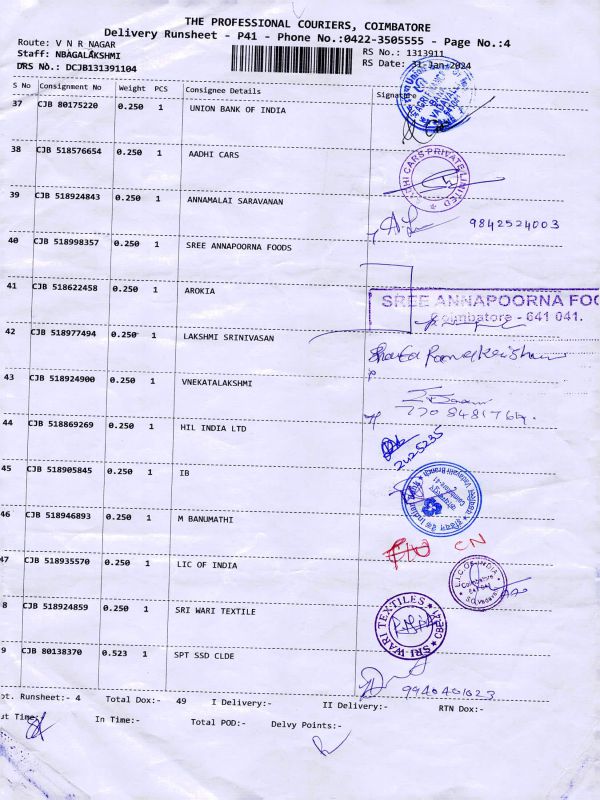 THE PROFESSIONAL COURIERS, COIMBATORE
Delivery Runsheet - P41 - Phone No.:0422-3505555 - Page No.:4
Route: V N R NAGAR
RS No.: 1313911
Staff: NBAGALAKSHMI
RS Date: 31-Jan-2024
DRS No.: DCJB131391104
S No Consignment No Weight PCS Consignee Details Signature
37 CJB 80175220 0.250 1 UNION BANK OF INDIA
38 CJB 518576654 0.250 1 AADHI CARS
HI CARS PRIVATE LIMITED
39 CJB 518924843 0.250 1 ANNAMALAI SARAVANAN
9842524003
40 CJB 518998357 0.250 1 SREE ANNAPOORNA FOODS
41 CJB 518622458 0.250 1 AROKIA
SREE ANNAPOORNA FOO
Coimbatore - 641 041.
42 CJB 518977494 0.250 1 LAKSHMI SRINIVASAN
43 CJB 518924900 0.250 1 VNEKATALAKSHMI
44 CJB 518869269 0.250 1 HIL INDIA LTD
2425235
45 CJB 518905845 0.250 1 IB
46 CJB 518946893 0.250 1 M BANUMATHI
CN
47 CJB 518935570 0.250 1 LIC OF INDIA
L.I.C. OF INDIA
Coimbatore
8 CJB 518924859 0.250 1 SRI WARI TEXTILE
SRI WARI TEXTILES
9 CJB 80138370 0.523 1 SPT SSD CLDE
9940401023
ot. Runsheet:- 4 Total Dox:- 49 I Delivery:- II Delivery:- RTN Dox:-
ut Time:- In Time:- Total POD:- Delvy Points:-